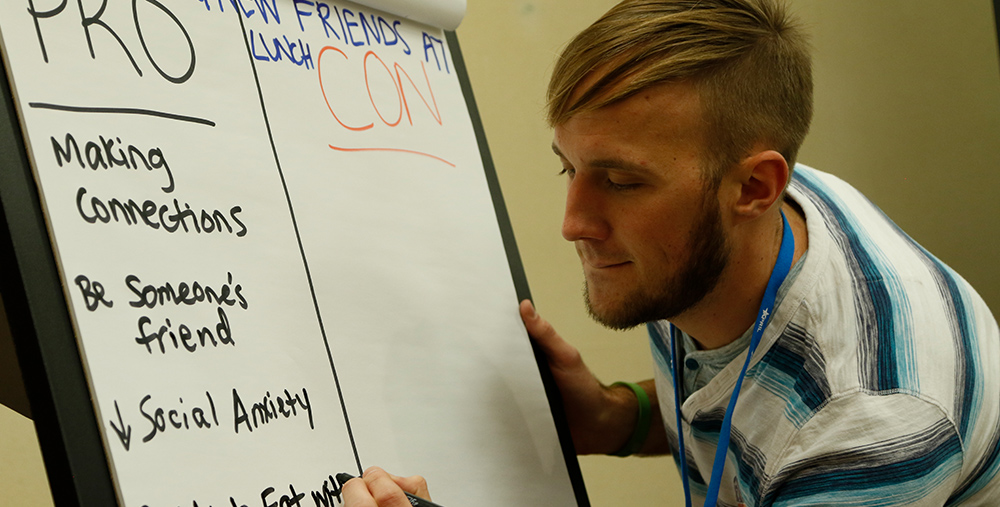 NEW FRIENDS AT
LUNCH
PRO
CON
Making
Connections
Be Someone's
friend
↓ Social Anxiety
Eat with